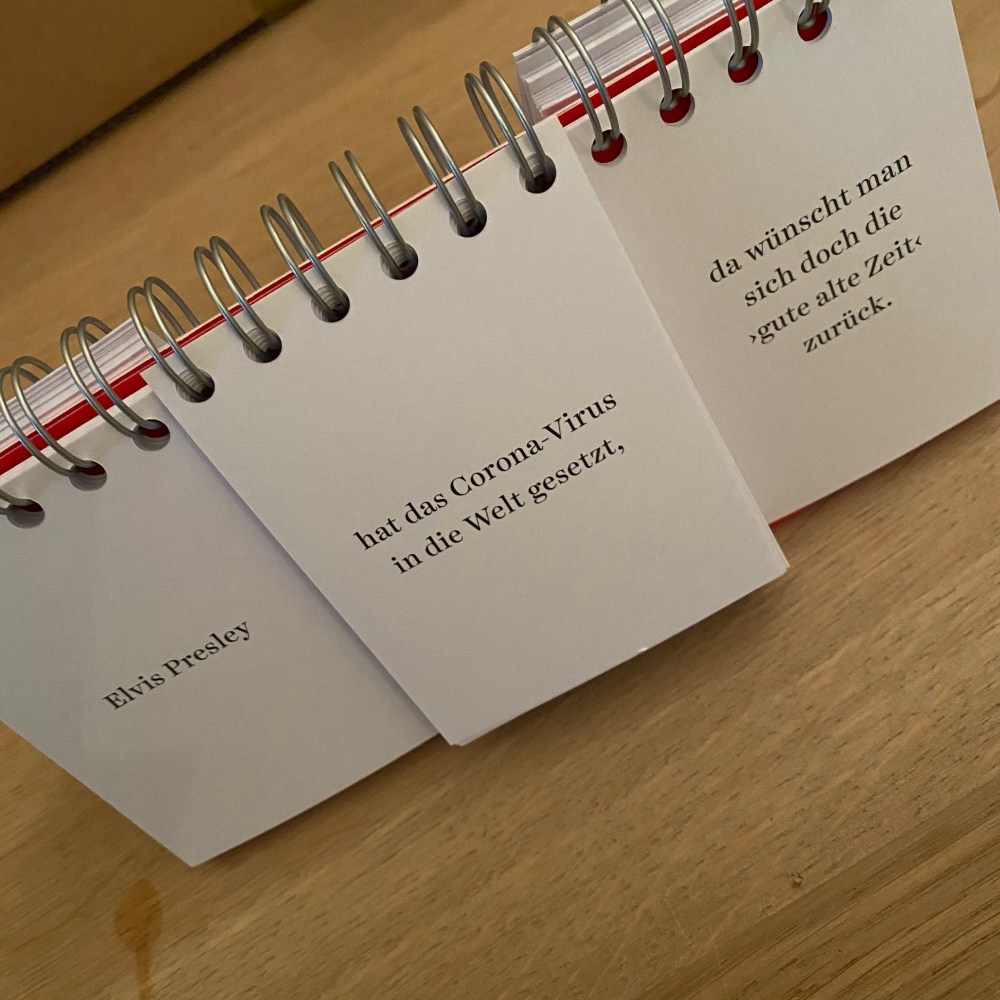 Elvis Presley
hat das Corona-Virus
in die Welt gesetzt,
da wünscht man
sich doch die
›gute alte Zeit‹
zurück.